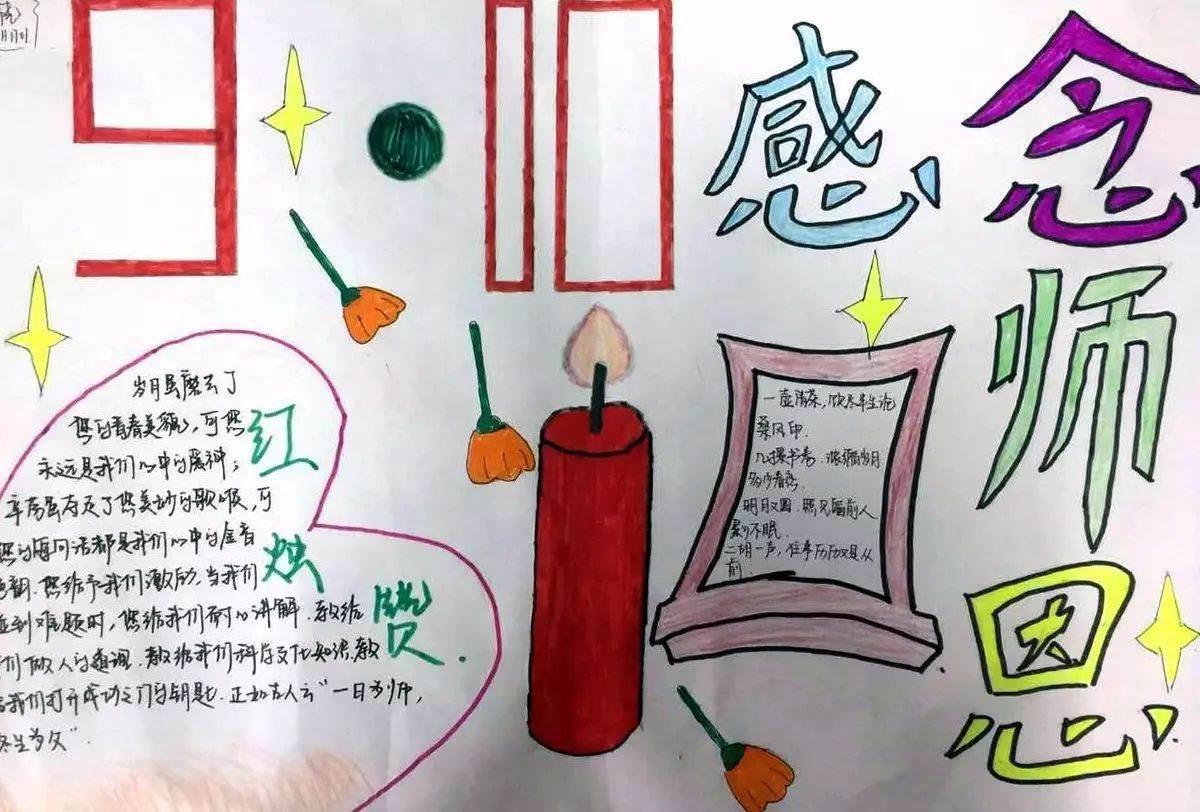 9·10
感念师恩
岁月虽磨去了
您的青春美貌,可您
永远是我们心中的魔神;
辛劳虽夺走了您美妙的歌喉,可
您的每句话都是我们心中的金音
您给予我们激励.当我们
碰到难题时,您给我们耐心讲解.教给
们做人的道理.教给我们科学文化知识,教
给我们打开成功之门的钥匙.正如古人云"一日为师,
终生为父".
红
烛
赞
一壶清茶,饮尽半生论
桑风印.
几摞书卷.浓缩岁月
明月又圆.照见备前人
累不眠.
二胡一声,往事历历又是从
前